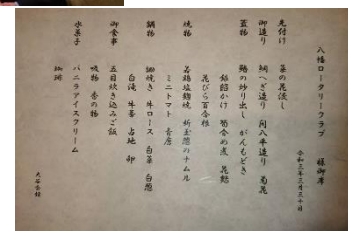 八幡ロータリークラブ 様御席
令和三年三月三十日
先付け 菜の花浸し
御造り 鯛へぎ造り 間八平造り 菊花
蓋物 鶏の炒り出し がんもどき
銀餡かけ 筍含め煮 花麩
花びら百合根
焼物 若鶏塩麹焼 新玉葱のナムル
ミニトマト 青唐
鍋物 鋤焼き 牛ロース 白菜 白葱
白滝 牛蒡 占地 卵
御食事 五目炊き込みご飯
吸物 香の物
水菓子 バニラアイスクリーム
珈琲